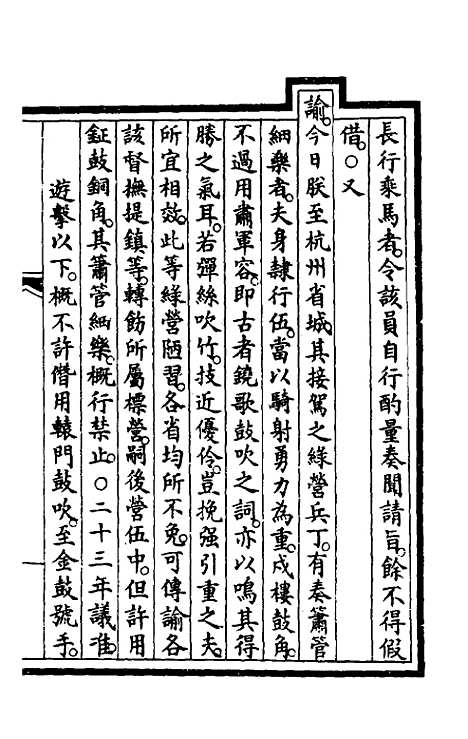 長行乘馬者。令該員自行酌量奏聞請旨。餘不得假
借。○又
諭。今日朕至杭州省城。其接駕之綠營兵丁。有奏簫管
細樂者。夫身隷行伍。當以騎射勇力為重。戍樓鼓角。
不過用肅軍容。即古者鐃歌鼓吹之詞。亦以鳴其得
勝之氣耳。若彈絲吹竹。技近優伶。豈挽强引重之夫。
所宜相效。此等綠營陋習。各省均所不免。可傳諭各
該督撫提鎮等。轉飭所屬標營。嗣後營伍中。但許用
鉦鼓銅角。其簫管細樂。概行禁止。○二十三年議准。
遊擊以下。概不許僭用轅門鼓吹。至金鼓號手。